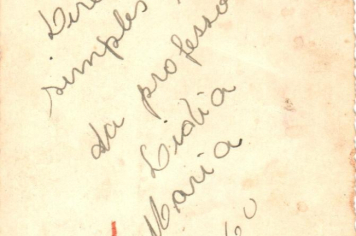 simples
da professo
Lidia
Maria